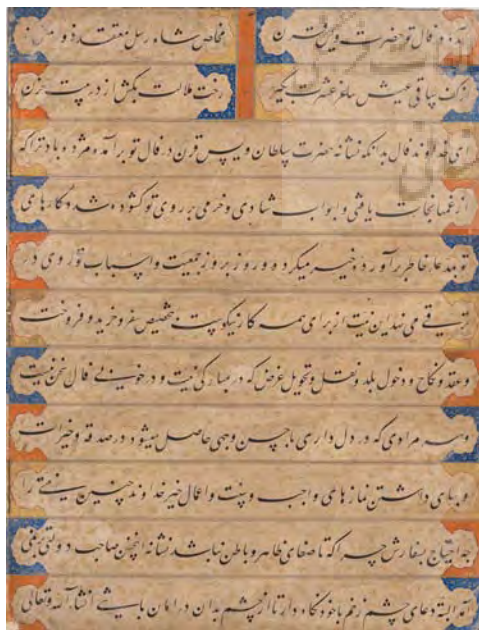 آمد در فال تو حضرت ویس قرن
مخلص شاه رسل معتقد ذو المنن
از کف ساقی عیش ساغر عشرت بگیر
رخت ملالت بکش از در بیت حزن
ای خداوند فال بدانکه نشانه حضرت سلطان ویس قرن در فال تو برآمد و مژده باد ترا که
از غمها نجات یافتی و ابواب شادی و خرمی بر روی تو گشوده شد و کارهای
تو بمدعا خاطر برآورده خیر میگردد و روز بروز جمعیت و اسباب تو روی در
ترقی می نهد این نیت از برای همه کار نیکوست بتخصیص سفر و خرید و فروخت
و عقد و نکاح و دخول بلد و نقل و تحویل غرض که در مبارکی نیت و در خوبی فال سخن نیست
و هر مرادی که در دل داری باحسن وجهی حاصل میشود در صدقه و خیرات
و بپای داشتن نمازهای واجب و سنت و اعمال خیر خداوند چنین نیتی را
چه احتیاج بسفارش چرا که تا صفای ظاهر و باطن نباشد نشانه اینچنین صاحب دولتی برنمی
آید البته دعای چشم زخم با خود نگاه دار تا از چشم بدان در امان باشی انشاء الله تعالی